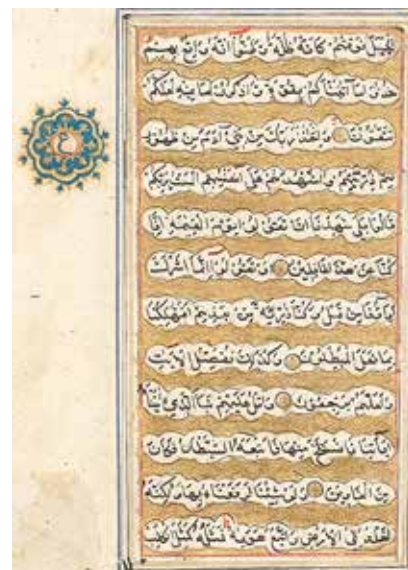 الجبل فوقهم كانه ظلة وظنوا انه واقع بهم
خذوا ما آتيناكم بقوة واذكروا ما فيه لعلكم
تتقون واذ اخذ ربك من بني آدم من ظهور
هم ذريتهم واشهدهم على انفسهم الست بربكم
قالوا بلى شهدنا ان تقولوا يوم القيمة انا
كنا عن هذا غافلين او تقولوا انما اشرك
آباؤنا من قبل وكنا ذرية من بعدهم افتهلكنا
بما فعل المبطلون وكذلك نفصل الآيات
ولعلهم يرجعون واتل عليهم نبا الذي
آياتنا فانسلخ منها فاتبعه الشيطان فكان
من الغاوين ولو شئنا لرفعناه بها ولكنه
اخلد الى الارض واتبع هويه فمثله كمثل الكلب
ع